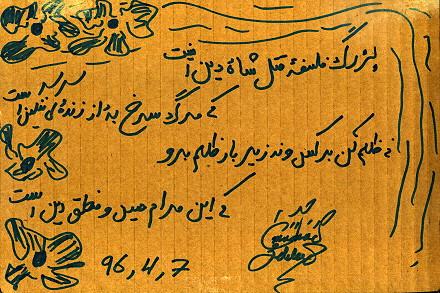 بزرگ فلسفهٔ قتل شاه دین اینست
که مرگ سرخ به از زندگی ننگین است
نه ظلم کن بر کس و نه زیر بار ظلم برو
که این مرام حسین و منطق دین است
96,4,7